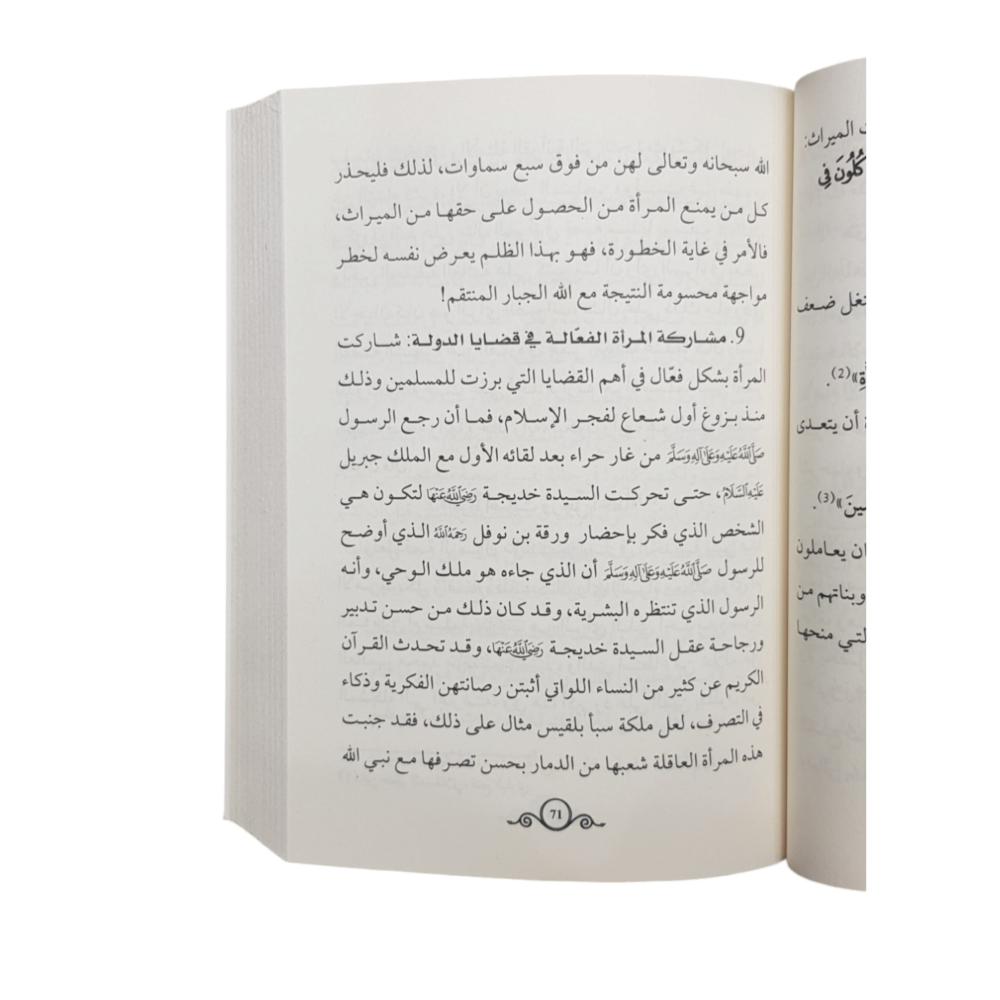 الله سبحانه وتعالى لهن من فوق سبع سماوات، لذلك فليحذر
كل من يمنع المرأة من الحصول على حقها من الميراث،
فالأمر في غاية الخطورة، فهو بهذا الظلم يعرض نفسه لخطر
مواجهة محسومة النتيجة مع الله الجبار المنتقم!
9. مشاركة المرأة الفعّالة في قضايا الدولة: شاركت
المرأة بشكل فعّال في أهم القضايا التي برزت للمسلمين وذلك
منذ بزوغ أول شعاع لفجر الإسلام، فما أن رجع الرسول
صَلَّى اللَّهُ عَلَيْهِ وَعَلَى آلِهِ وَسَلَّمَ من غار حراء بعد لقائه الأول مع الملك جبريل
عَلَيْهِ السَّلَامُ، حتى تحركت السيدة خديجة رَضِيَ اللَّهُ عَنْهَا لتكون هي
الشخص الذي فكر بإحضار ورقة بن نوفل رَحِمَهُ اللَّهُ الذي أوضح
للرسول صَلَّى اللَّهُ عَلَيْهِ وَعَلَى آلِهِ وَسَلَّمَ أن الذي جاءه هو ملك الوحي، وأنه
الرسول الذي تنتظره البشرية، وقد كان ذلك من حسن تدبير
ورجاحة عقل السيدة خديجة رَضِيَ اللَّهُ عَنْهَا، وقد تحدث القرآن
الكريم عن كثير من النساء اللواتي أثبتن رصانتهن الفكرية وذكاء
في التصرف، لعل ملكة سبأ بلقيس مثال على ذلك، فقد جنبت
هذه المرأة العاقلة شعبها من الدمار بحسن تصرفها مع نبي الله
71
الميراث:
كُلُونَ فِي
ضعف
(2).
أن يتعدى
(3).
يعاملون
وبناتهم من
منحها